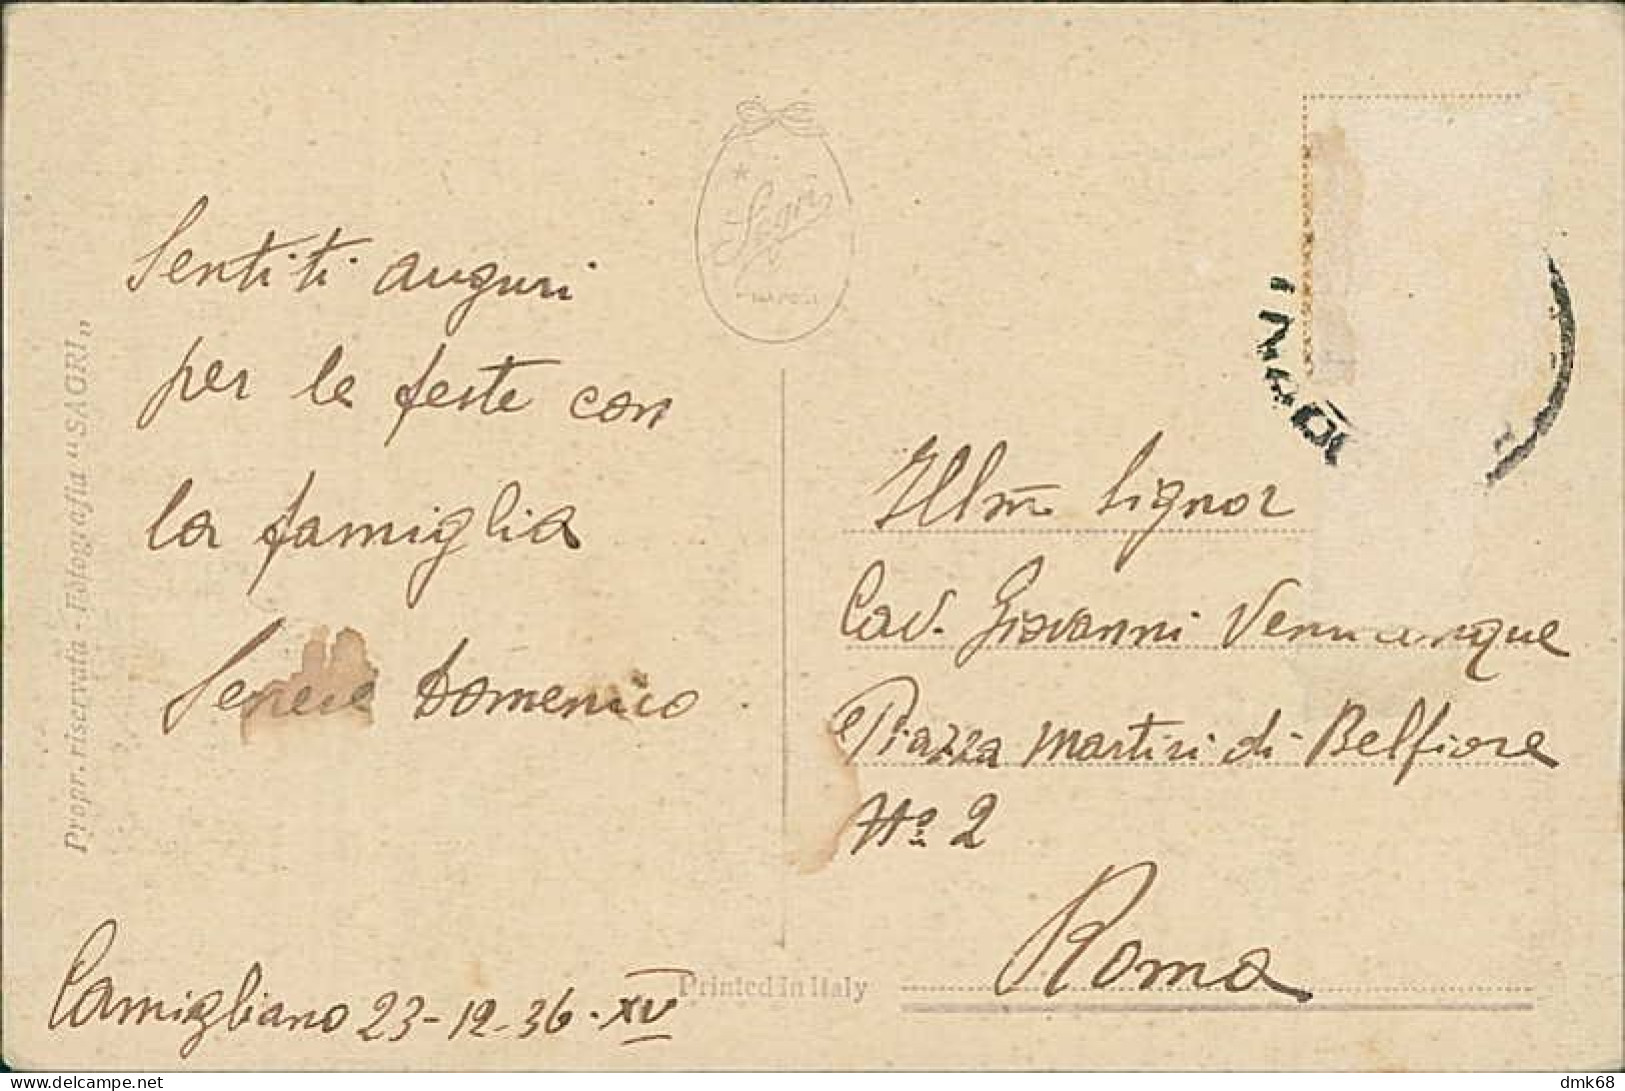 Propr. riservata - Fotografia "SAGRI"
Sentiti auguri
per le feste con
la famiglia
Domenico
Camigliano 23-12-36. XV
NAPOLI
Printed in Italy
Illmo Signor
Cav. Giovanni
Piazza Martiri di Belfiore
No 2
Roma
www.delcampe.net
dmk68